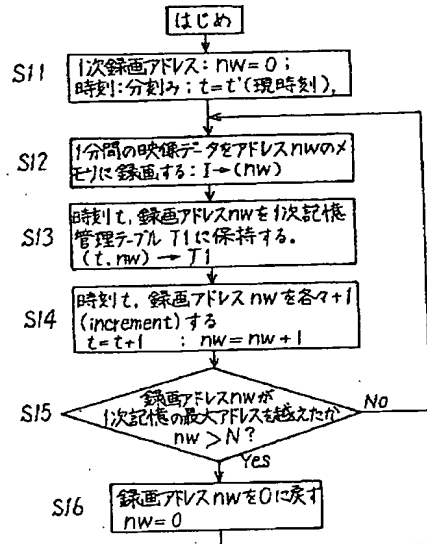 はじめ
S11
1次録画アドレス:nw=0;
時刻:分刻み;t=t'(現時刻),
S12
1分間の映像データをアドレスnwのメ
モリに録画する:I→(nw)
S13
時刻t,録画アドレスnwを1次記憶
管理テーブルT1に保持する。
(t.nw)→T1
S14
時刻t,録画アドレスnwを各々+1
(increment)する
t=t+1 :nw=nw+1
S15
録画アドレスnwが
1次記憶の最大アドレスを越えたか
nw>N?
No
Yes
S16
録画アドレスnwを0に戻す
nw=0